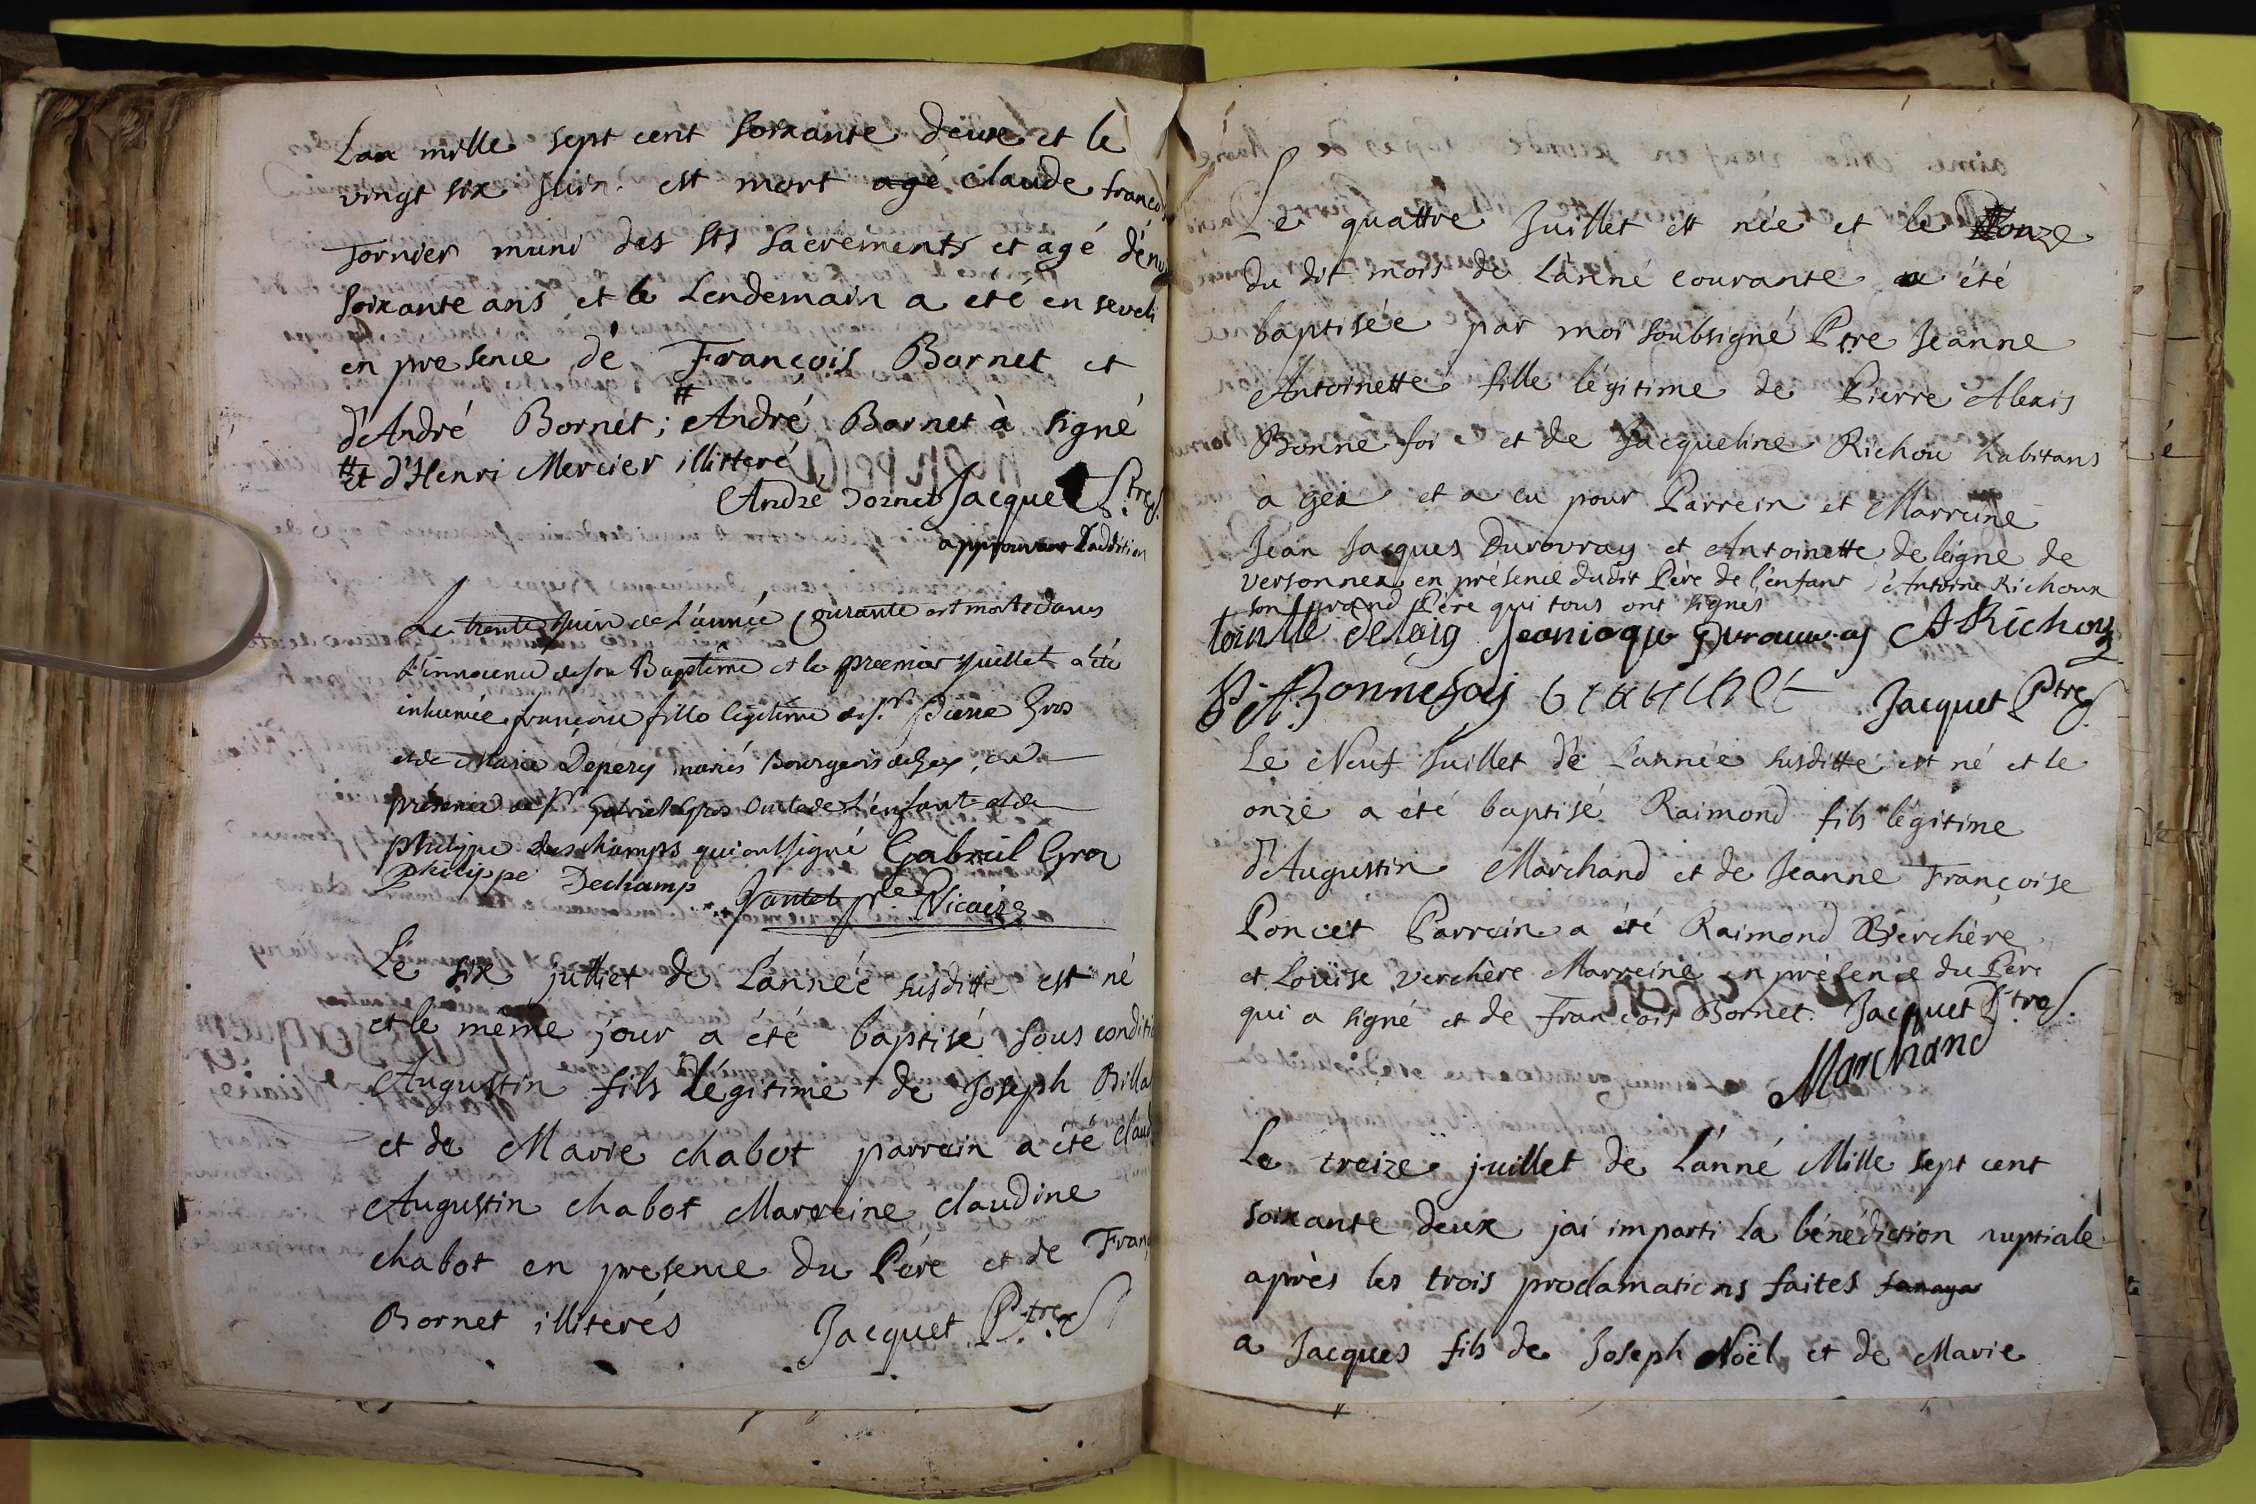 Lan mille sept cent soixante deux et le
vingt six juin est mort agé claude franço
Tornier muni des sts sacrements et agé d'env
soixante ans et le Lendemain a été enseveli
en presence dé François Bornet et
d'André Bornet; # André Bornet à signé
# et d'Henri Mercier illitteré
André Bornet Jacquet Ptre
approuvant l'addition
Le trente juin de L'année Courante est morte dans
L'innocence de son Baptême et le premier Juillet a été
inhumée françoise fille légitime de Sr Pierre Gros
et de Marie Depery mariés Bourgeois de Gex, en
présence de Sr Gabriel Gros Oncle de L'enfant et de
philippe deschamps qui ont signé Gabriel Gros
Philippe Dechamp Vicaire
Lé six julliet de L'année susditte est né
et le même jour a été baptisé sous conditi
Augustin fils légitime de Joseph Billa
et de Marie chabot parrein a été claud
Augustin chabot Marreine claudine
chabot en presence du Pére et de Fran
Bornet illiterés Jacquet Ptre
Le quattre Juillet est née et le onze
du dit mois de L'anné courante a été
baptisée par moi soubsigné Ptre Jeanne
Antoinette fille légitime de Pierre Alexis
Bonne foi et de Jacqueline Richou habitans
a gex et a eu pour Parrein et Marreine
Jean Jacques Durovray et Antoinette deleigne de
versonnex en présence dudit Père de l'enfant & Antoine Richoux
son grand Père qui tous ont signés
toinette delaig Jeanjaque Durouvray A Richoux
P. A Bonnefoy Jacquet Ptre
Le Neuf Juillet dé L'année susditte est né et le
onze a été baptisé Raimond fils légitime
d'Augustin Marchand et de Jeanne Françoise
Poncet Parrein a été Raimond Verchère
et Louïse verchère Marreine en présence du Père
qui a signé et de François Bornet. Jacquet Ptre
Marchand
Le treize juillet de L'anné Mille sept cent
soixante deux jai imparti la bénédiction nuptiale
après les trois proclamations faites
a Jacques fils de Joseph Noël et de Marie